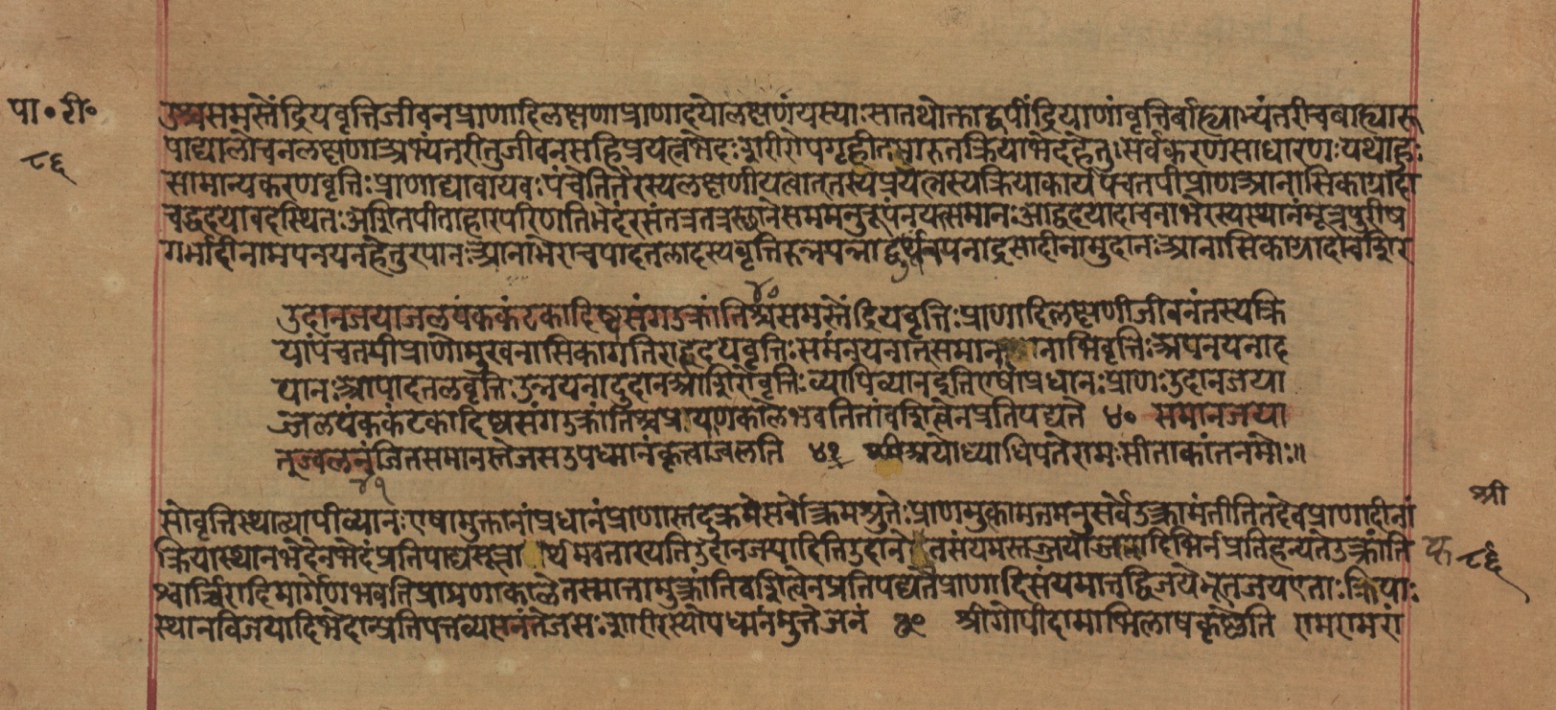 पा॰ टी॰
८६
उच्यसमस्तेंद्रियवृत्तिजीवनप्राणादिलक्षणाप्राणादयोलक्षणंयस्याःसातथोक्ताद्वयींद्रियाणांवृत्तिर्बाह्याभ्यंतरीचबाह्यारू
पाद्यालोचनलक्षणाअभ्यंतरीतुजीवनंसहिप्रयत्नभेदःशरीरोपगृहीतमारुतक्रियाभेदहेतुःसर्वकरणसाधारणःयथाहुः
सामान्यकरणवृत्तिःप्राणाद्यावायवःपंचेतितैरस्यलक्षणीयत्वात्तस्यप्रयत्नस्यक्रियाकार्यपंचतयीप्राणआनासिकाग्रादा
चहृदयादवस्थितःअशितपीताहारपरिणतिभेदंरसंतत्रतत्रस्थानेसममनुरूपंनयन्समानःआहृदयादाचनाभेरस्यस्थानंमूत्रपुरीष
गर्भादीनामपनयनहेतुरपानःआनाभेराचपादतलादस्यवृत्तिरुन्नयनादूर्ध्वंनयनाद्रसादीनामुदानःआनासिकाग्रादाचशिर
४०
उदानजयाजलपंककंटकादिष्वसंगउत्क्रांतिश्चसमस्तेंद्रियवृत्तिःप्राणादिलक्षणाजीवनंतस्यक्रि
यापंचतयीप्राणोमुखनासिकागतिराहृदयवृत्तिःसमंनयनात्समानआनाभिवृत्तिःअपनयनाद
पानःआपादतलवृत्तिःउन्नयनादुदानआशिरोवृत्तिःव्यापीव्यानइतिएषांप्रधानःप्राणःउदानजया
ज्जलपंककंटकादिष्वसंगउत्क्रांतिश्चप्रायणकालेभवतितांवशित्वेनप्रतिपद्यते ४० समानजया
तज्वलनंजितसमानस्तेजसउपध्मानंकृत्वाज्वलति ४१ श्रीअयोध्याधिपतेरामःसीताकांतनमोः॥
४१
सोवृत्तिस्थाव्यापीव्यानःएषामुक्तानांप्रधानंप्राणास्तदुत्क्रमेसर्वोत्क्रमश्रुतेःप्राणमुत्क्रामंतमनुसर्वेउत्क्रामंतीतितदेवंप्राणादीनां
श्री
क्रियास्थानभेदेनभेदंप्रतिपाद्यसूत्रार्थमवतारयतिउदानजयादितिउदानेकृतसंयमस्तज्जयाज्जलादिभिर्नप्रतिहन्यतेउत्क्रांति
८६
श्चार्चिरादिमार्गेणभवतिप्रायणकालेतस्मात्तामुत्क्रांतिंवशित्वेनप्रतिपद्यतेप्राणादिसंयमात्तद्विजयेभूतजयएताःक्रियाः
स्थानविजयादिभेदान्प्रतिपत्तव्यसनंतेजसःशारीरस्योपध्मानमुत्तेजनं ४० श्रीगोपीदामाभिलाषकृष्णेति रामरामरां